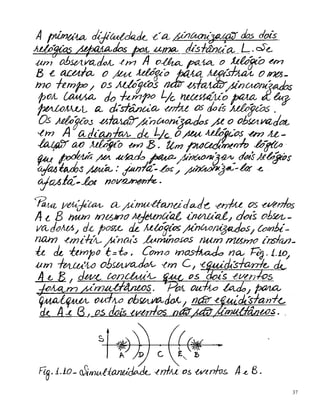 A primeira dificuldade é a sincronização dos dois
relógios separados por uma distância L. Se
um observador em A olha para o relógio em
B e acerta o seu relógio para registrar o mes-
mo tempo, os relógios não estarão sincronizados
por causa do tempo L/c necessário para a luz
percorrer a distância entre os dois relógios.
Os relógios estarão sincronizados se o observador
em A adiantar de L/c o seu relógios em re-
lação ao relógio em B. Um procedimento lógico
que poderia ser usado para sincronizar dois relógios
afastados seria: juntá-los, sincronizá-los e
afastá-los novamente.
Para verificar a simultaneidade entre os eventos
A e B num mesmo referencial inercial, dois obser-
vadores, de posse de relógios sincronizados, combi-
nam emitir sinais luminosos num mesmo instan-
te de tempo t=t₀. Como mostrado na Fig. 1.10,
um terceiro observador em C, equidistante de
A e B, deve concluir que os dois eventos
foram simultâneos. Por outro lado, para
qualquer outro observador, não equidistante
de A e B, os dois eventos não são simultâneos.
S
A D C E B
Fig. 1.10 - Simultaneidade entre os eventos A e B.
37